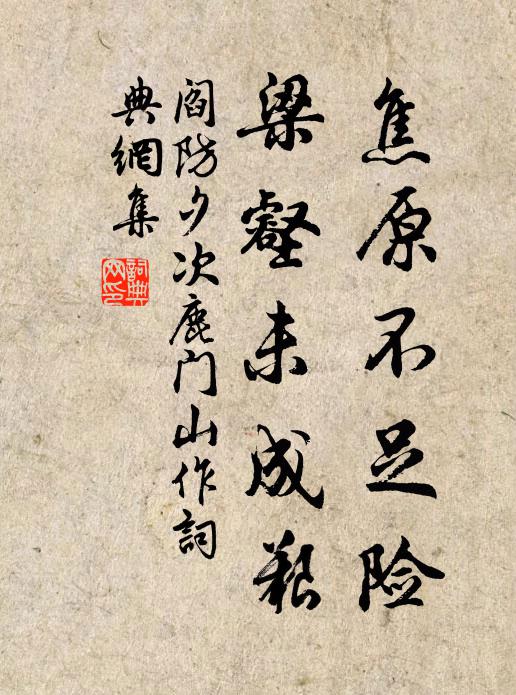 焦原不足险
梁壑未成艰
阎防夕次鹿门山作词
典網集
詞典網印